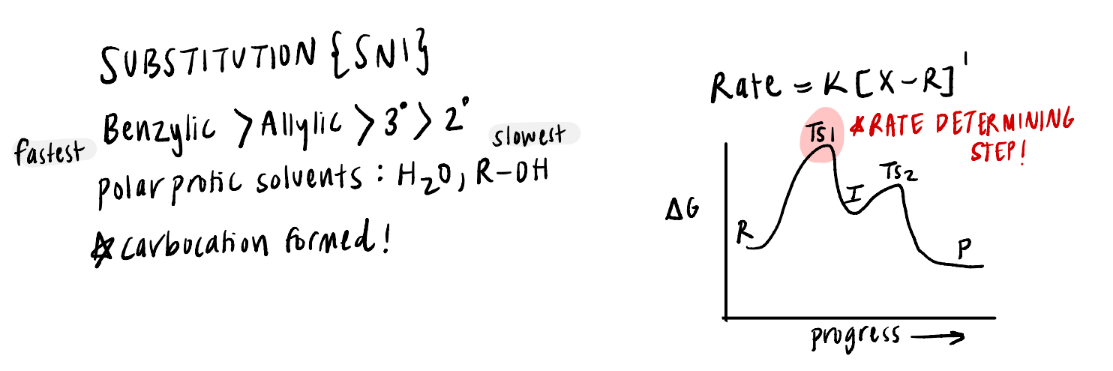 SUBSTITUTION {SN1}
fastest Benzylic > Allylic > 3° > 2° slowest
polar protic solvents : H₂O, R-OH
☆ carbocation formed!
Rate = K [X-R]¹
TS1 * RATE DETERMINING
STEP!
TS2
I
ΔG
R
P
progress →